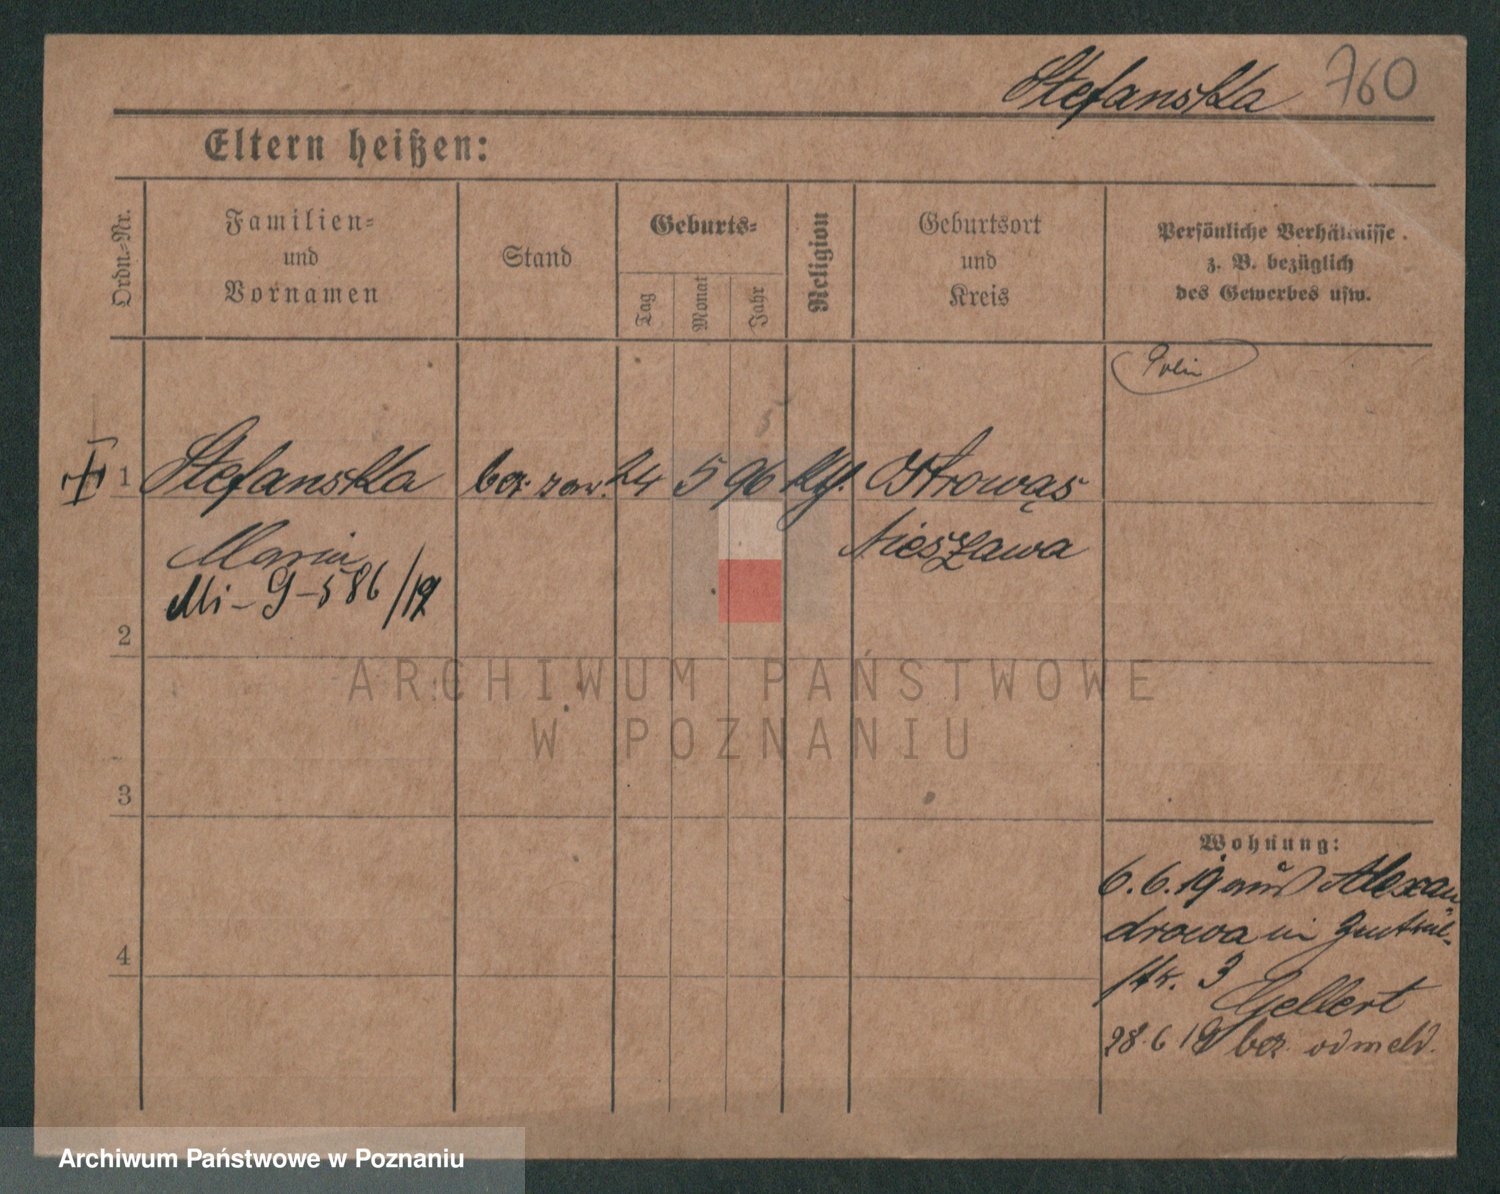 Stefanska 760
Eltern heißen:
Ordn.-Nr.
Familien-
und
Vornamen
Stand
Geburts-
Tag
Monat
Jahr
Religion
Geburtsort
und
Kreis
Persönliche Verhältnisse
z. B. bezüglich
des Gewerbes usw.
Polin
5
1 Stefanska bez zaw. 24 5 96 Ktf. Ostrowąs
Maria Nieszawa
Mi-G-586/19
2
ARCHIWUM PAŃSTWOWE
W POZNANIU
3
Wohnung:
6.6.19 aus Alexan
drowa in
4
str. 3
Gellert
28.6 19 bez odmeld.
Archiwum Państwowe w Poznaniu